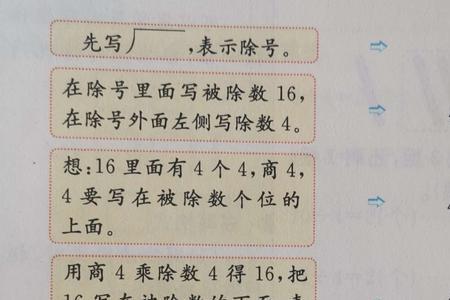 先写厂,表示除号。
在除号里面写被除数 16,
在除号外面左侧写除数 4。
想:16 里面有 4 个 4,商 4,
4 要写在被除数个位的
上面。
用商 4 乘除数 4 得 16,把